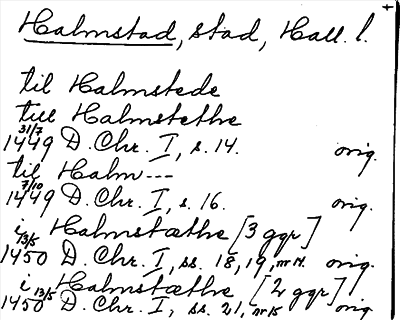 Halmstad, stad, Hall. l.
til Halmstede
till Halmstethe
31/7 1449 D. Chr. I, s. 14. orig.
til Halm---
7/10 1449 D. Chr. I, s. 16. orig.
i Halmstæthe [3 ggr]
13/5 1450 D. Chr. I, ss. 18, 19, nr 14. orig.
i Halmstæthe [2 ggr]
13/5 1450 D. Chr. I, ss. 21, nr 15 orig.